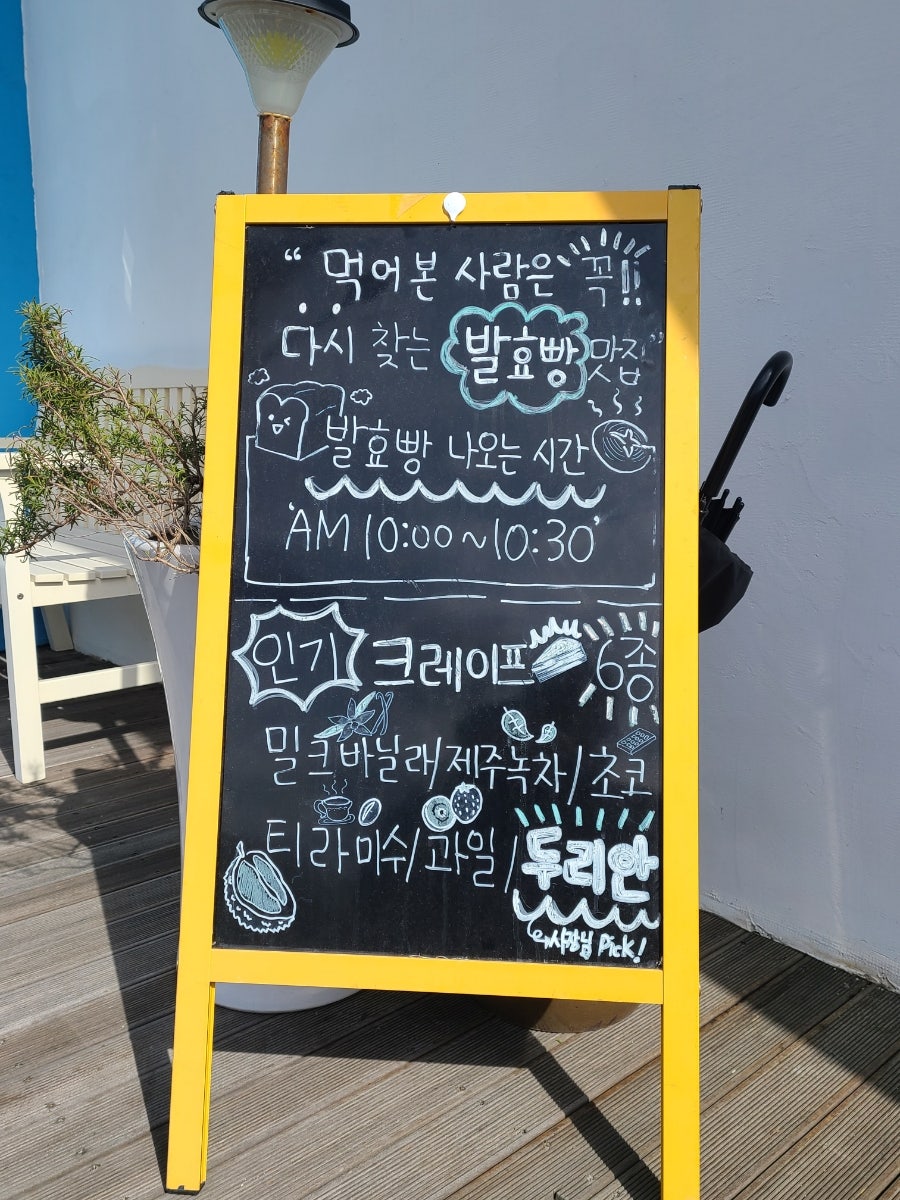 “ 먹어본 사람은 꼭!!
다시 찾는 발효빵 맛집”
발효빵 나오는 시간
'AM 10:00~10:30'
인기 크레이프 6종
밀크바닐래/제주녹차/초코
티라미수/과일/두리안
↳사장님 Pick!